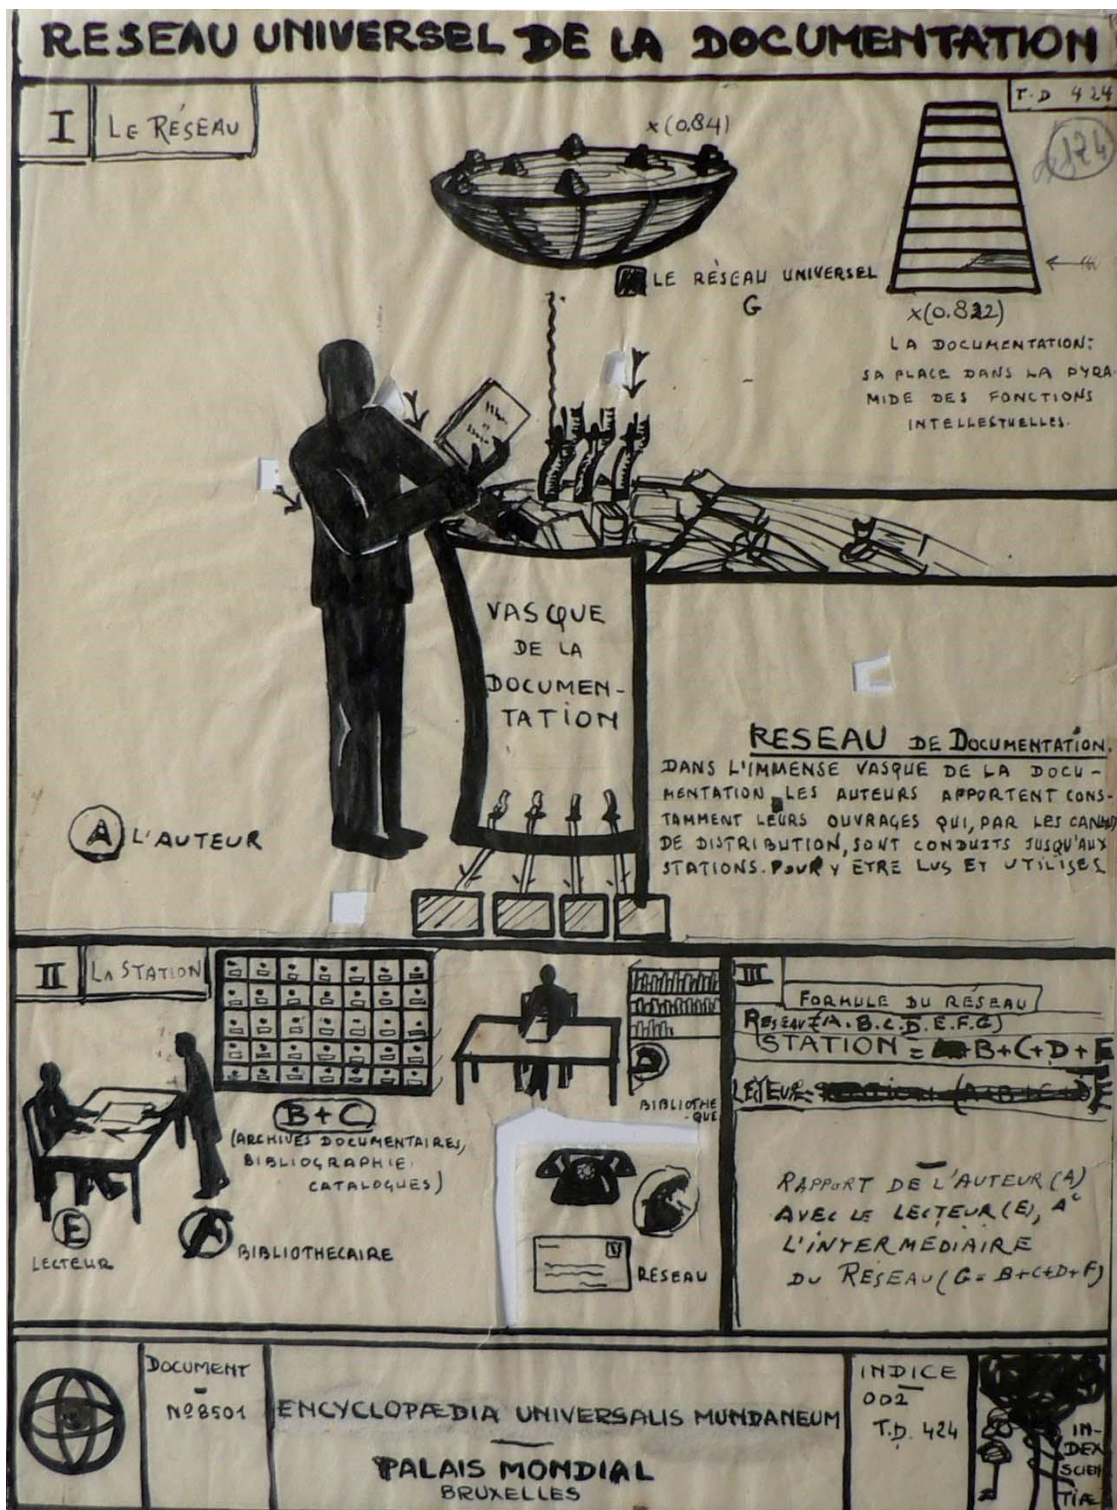 RESEAU UNIVERSEL DE LA DOCUMENTATION
I
LE RÉSEAU
T.D 424
x (0.84)
LE RÉSEAU UNIVERSEL
G
x(0.822)
LA DOCUMENTATION:
SA PLACE DANS LA PYRA-
MIDE DES FONCTIONS
INTELLESTUELLES.
VASQUE
DE LA
DOCUMEN-
TATION
A L'AUTEUR
RESEAU DE DOCUMENTATION.
DANS L'IMMENSE VASQUE DE LA DOCU-
MENTATION LES AUTEURS APPORTENT CONS-
TAMMENT LEURS OUVRAGES QUI, PAR LES
DE DISTRIBUTION, SONT CONDUITS JUSQU'AUX
STATIONS. POUR Y ETRE LUS ET UTILISES
II
LA STATION
B+C
(ARCHIVES DOCUMENTAIRES,
BIBLIOGRAPHIE
CATALOGUES)
E
LECTEUR
BIBLIOTHECAIRE
D
BIBLIOTHE
-QUE
RESEAU
III
FORMULE DU RÉSEAU
RESEAU (A.B.C.D.E.F.G)
STATION = B+C+D+E
LECTEUR=
RAPPORT DE L'AUTEUR (A)
AVEC LE LECTEUR (E), A
L'INTERMÉDIAIRE
DU RÉSEAU (G= B+C+D+F)
DOCUMENT
Nº 8501
ENCYCLOPÆDIA UNIVERSALIS MUNDANEUM
PALAIS MONDIAL
BRUXELLES
INDICE
002
T.D. 424
IN-
DEX
SCIEN
TIÆ